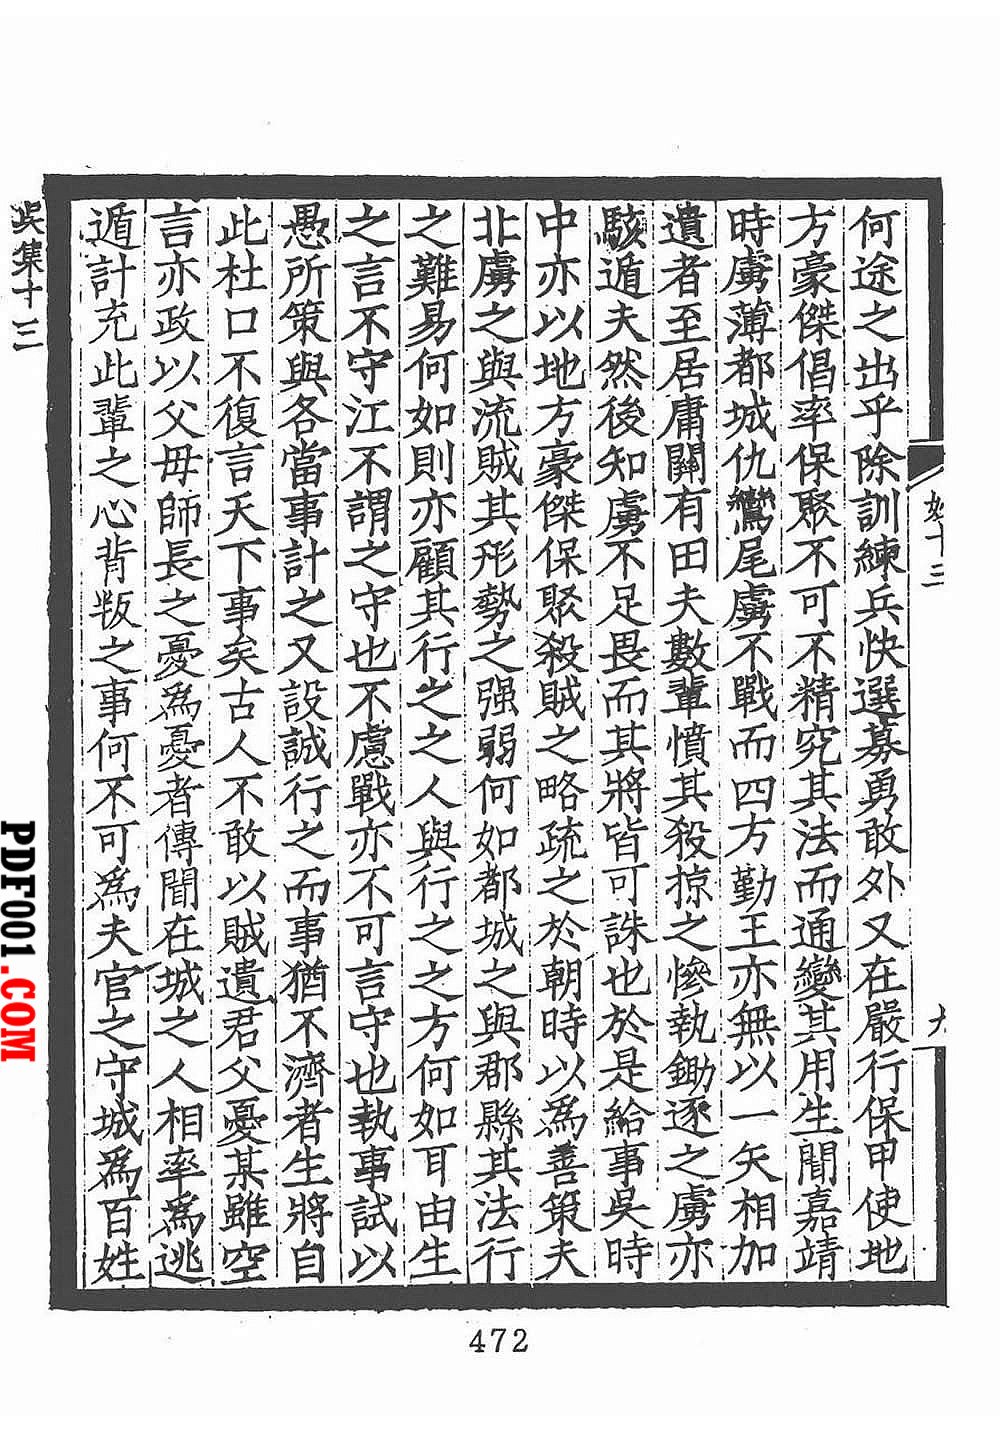 何途之出乎除訓練兵快選募勇敢外又在嚴行保甲使地
方豪傑倡率保聚不可不精究其法而通變其用生聞嘉靖
時虜薄都城仇鸞尾虜不戰而四方勤王亦無以一矢相加
遺者至居庸關有田夫數輩憤其殺掠之慘執鋤逐之虜亦
駭遁夫然後知虜不足畏而其將皆可誅也於是給事吳時
中亦以地方豪傑保聚殺賊之略疏之於朝時以為善策夫
北虜之與流賊其形勢之强弱何如都城之與郡縣其法行
之難易何如則亦顧其行之之人與行之之方何如耳由生
之言不守江不謂之守也不慮戰亦不可言守也執事試以
愚所策與各當事計之又設誠行之而事猶不濟者生將自
此杜口不復言天下事矣古人不敢以賊遺君父憂某雖空
言亦政以父毋師長之憂為憂者傳聞在城之人相率為逃
遁計充此輩之心背叛之事何不可為夫官之守城為百姓
吳集十三
十三
九
472
PDF001.COM